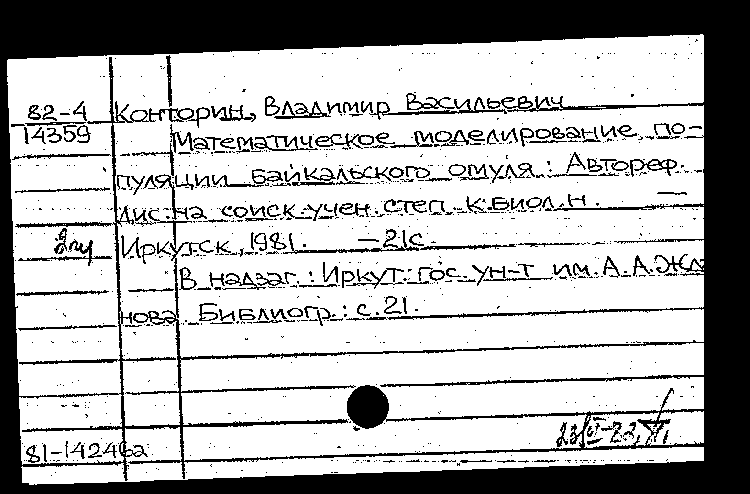 82-4 Конторин, Владимир Васильевич
14359 Математическое моделирование по-
пуляции байкальского омуля: Автореф.
дис. на соиск. учен. степ. к.биол.н. —
Иркутск, 1981. — 21с.
В надзаг.: Иркут. гос. ун-т им. А.А.Жда
нова. Библиогр.: с.21.
81-142462а